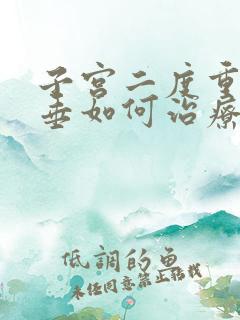 子宫二度重
垂如何治療
低調的魚
未经同意禁止转載